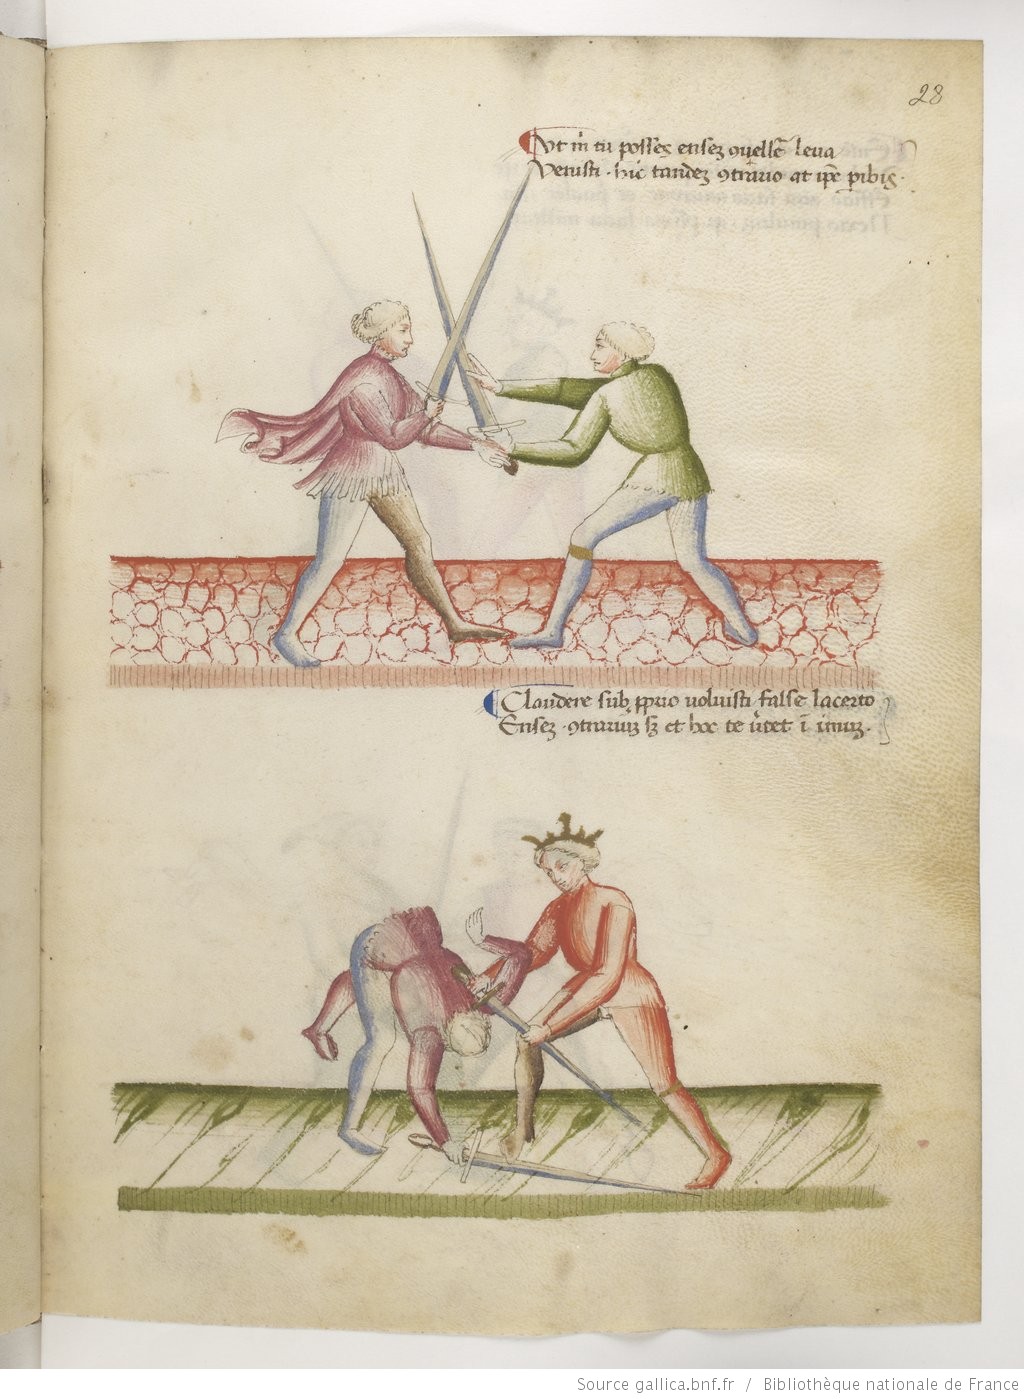 28
Ut m̄ tu posses ensez ꝯuelle͞ leua
Venisti · hic tandez ꝯtrario at ip̄e p̱ibis ·
Claudere sub ꝓprio uoluisti false lacerto
Ensez · ꝯtrariuz sꝫ et hoc te v̓tet ī imuz ·
Source gallica.bnf.fr / Bibliothèque nationale de France